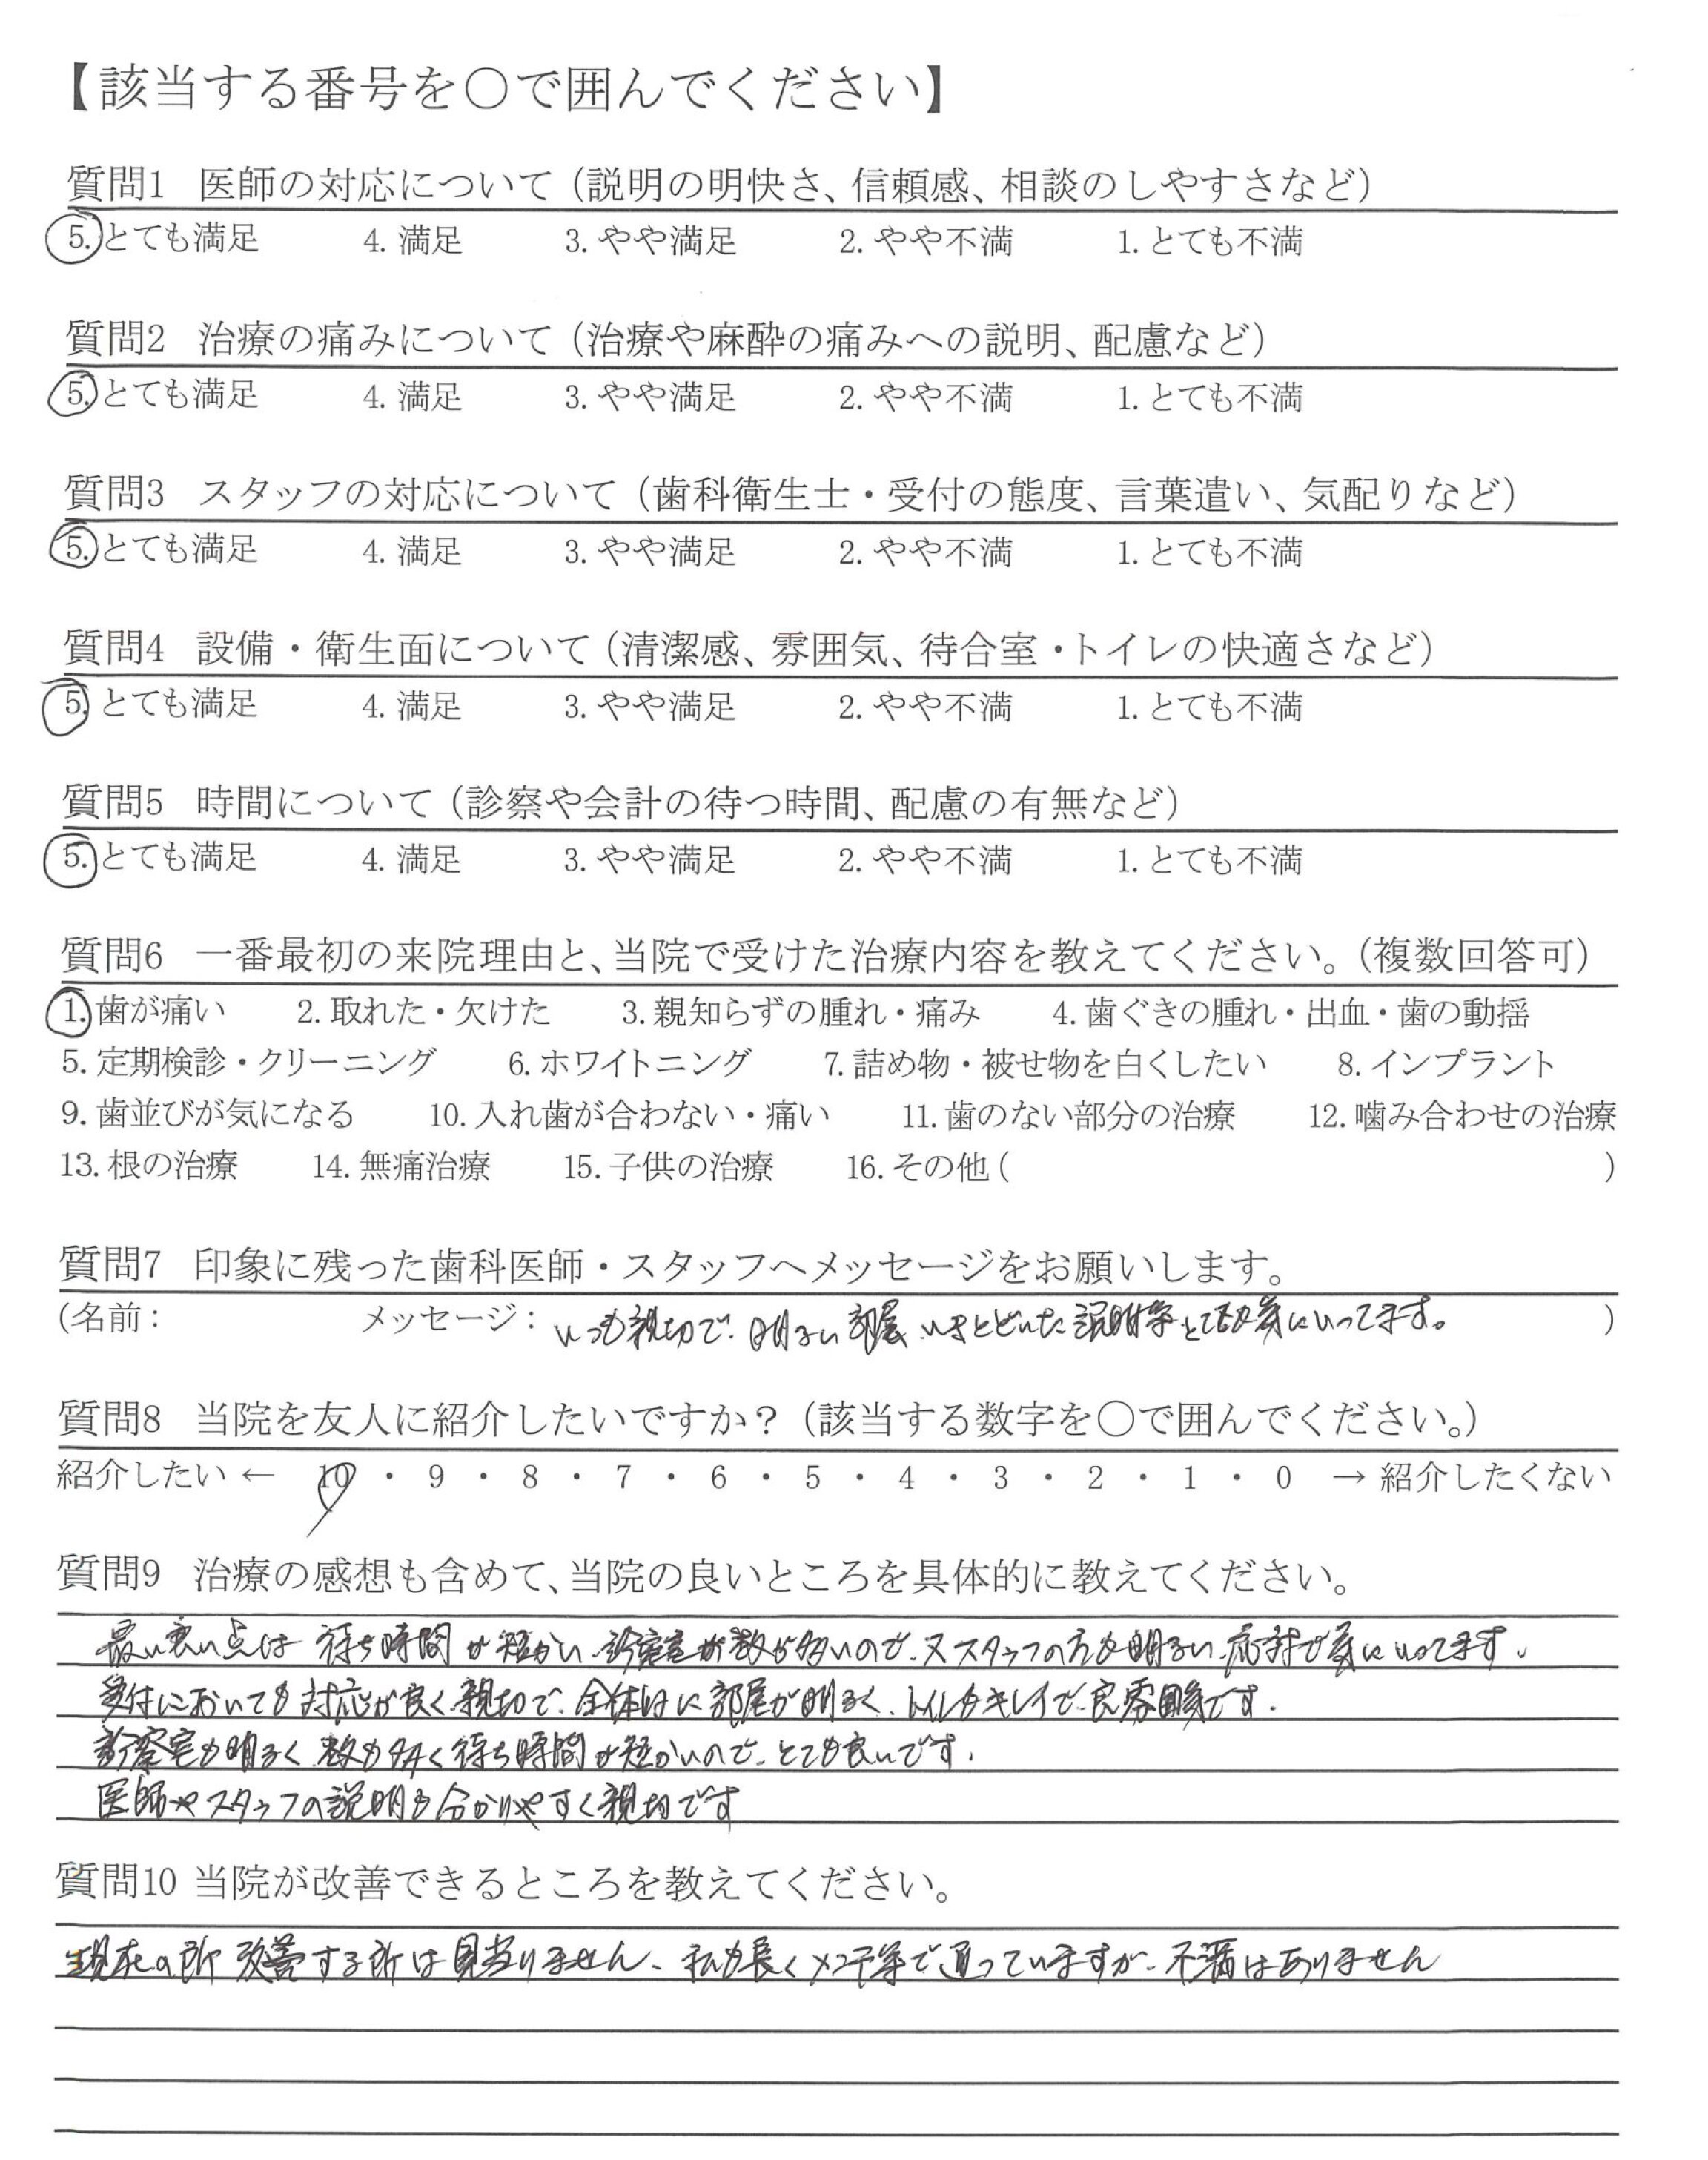 【該当する番号を〇で囲んでください】
質問1 医師の対応について（説明の明快さ、信頼感、相談のしやすさなど）
5. とても満足 4. 満足 3. やや満足 2. やや不満 1. とても不満
質問2 治療の痛みについて（治療や麻酔の痛みへの説明、配慮など）
5. とても満足 4. 満足 3. やや満足 2. やや不満 1. とても不満
質問3 スタッフの対応について（歯科衛生士・受付の態度、言葉遣い、気配りなど）
5. とても満足 4. 満足 3. やや満足 2. やや不満 1. とても不満
質問4 設備・衛生面について（清潔感、雰囲気、待合室・トイレの快適さなど）
5. とても満足 4. 満足 3. やや満足 2. やや不満 1. とても不満
質問5 時間について（診察や会計の待つ時間、配慮の有無など）
5. とても満足 4. 満足 3. やや満足 2. やや不満 1. とても不満
質問6 一番最初の来院理由と、当院で受けた治療内容を教えてください。（複数回答可）
1. 歯が痛い 2. 取れた・欠けた 3. 親知らずの腫れ・痛み 4. 歯ぐきの腫れ・出血・歯の動揺
5. 定期検診・クリーニング 6. ホワイトニング 7. 詰め物・被せ物を白くしたい 8. インプラント
9. 歯並びが気になる 10. 入れ歯が合わない・痛い 11. 歯のない部分の治療 12. 噛み合わせの治療
13. 根の治療 14. 無痛治療 15. 子供の治療 16. その他（ ）
質問7 印象に残った歯科医師・スタッフへメッセージをお願いします。
（名前： メッセージ： いつも親切で、明るい部屋、いきとどいた説明等とても気にいってます。 ）
質問8 当院を友人に紹介したいですか？（該当する数字を〇で囲んでください。）
紹介したい ← 10 ・ 9 ・ 8 ・ 7 ・ 6 ・ 5 ・ 4 ・ 3 ・ 2 ・ 1 ・ 0 → 紹介したくない
質問9 治療の感想も含めて、当院の良いところを具体的に教えてください。
良い点は 待ち時間が短かい、診察室が数が多いので、又スタッフの方も明るい、応対で気にいってます。
受付においても対応が良く親切で、全体的に部屋が明るく、トイレもキレイで、良雰囲気です。
診察室も明るく 数も多く待ち時間が短かいので、とても良いです。
医師やスタッフの説明も分かりやすく親切です
質問10 当院が改善できるところを教えてください。
現在の所 改善する所は見当りません、私も長く 予準で通っていますが、不満はありません